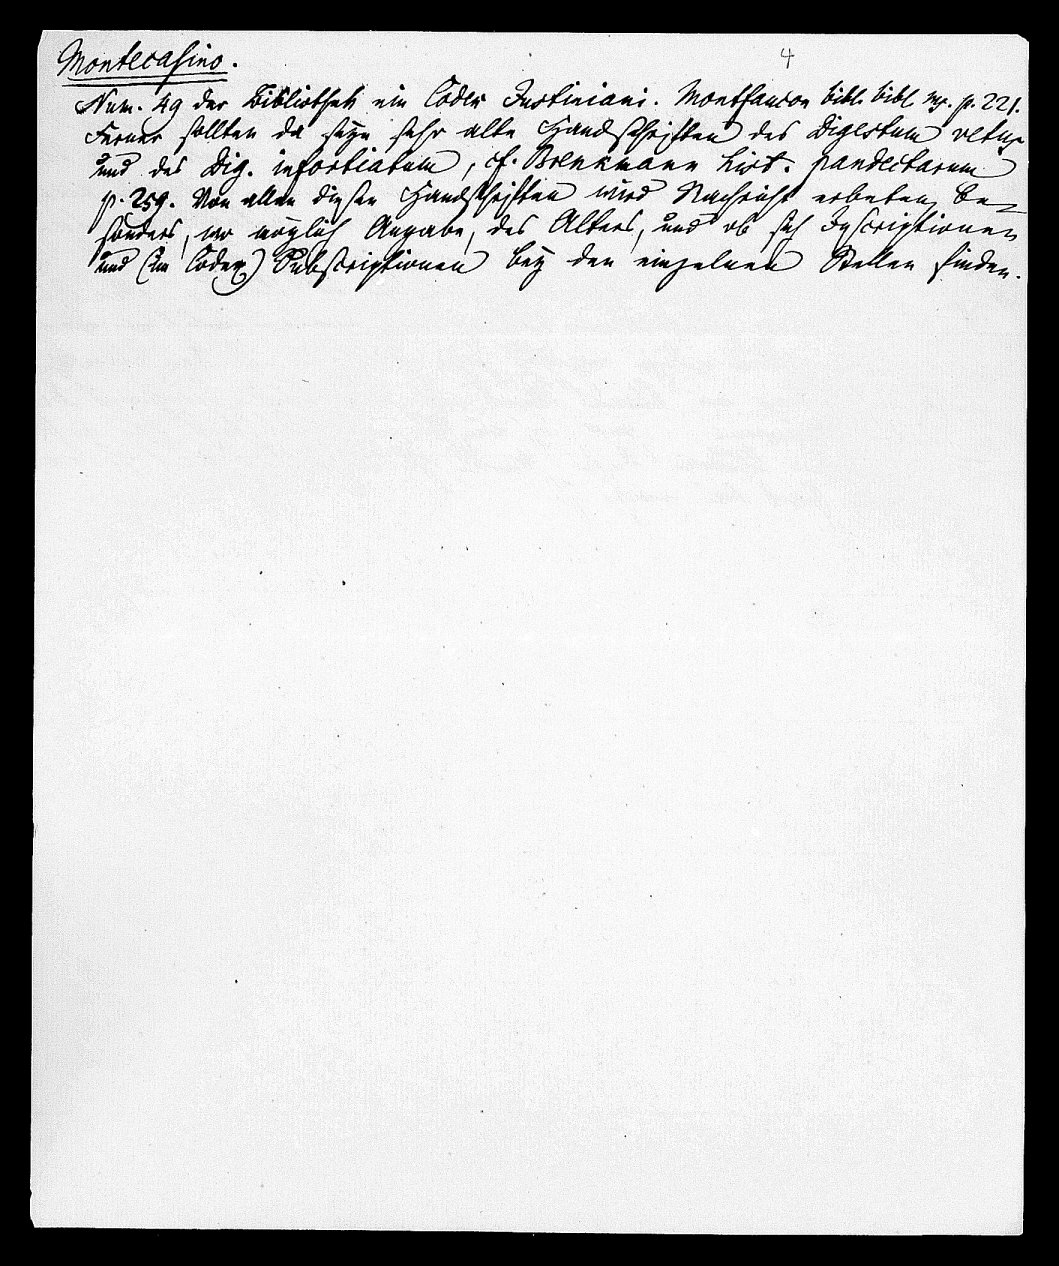 4
Montecasino.
Num. 49 der Bibliothek ein Codex Justiniani. Montfaucon bibl. bibl. mss. p. 221.
Ferner sollen da seyn sehr alte Handschriften des Digestum vetus
und des Dig. infortiatum, cf. Brenkmann hist. pandectarum
p. 259. Von allen diesen Handschriften wird Nachricht erbeten, be-
sonders, wo möglich Angabe, des Alters, und ob sich Inscriptionen
und (im Codex) Subscriptionen bey den einzelnen Stellen finden.